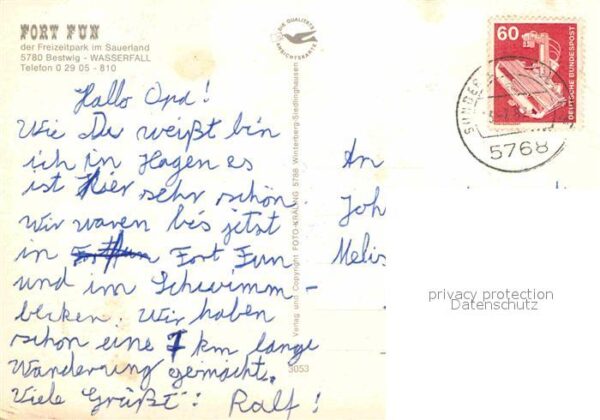 FORT FUN
der Freizeitpark im Sauerland
5780 Bestwig - WASSERFALL
Telefon 0 29 05 - 810
Hallo Opa!
Wie Du weißt bin
ich in Hagen es
ist hier sehr schön.
Wir waren bis jetzt
in Fort Fun
und im Schwimm-
becken. Wir haben
schon eine 7 km lange
Wanderung gemacht.
Viele Grüße! Ralf!
DIE QUALITÄTS
ANSICHTSKARTE
Verlag und Copyright FOTO-KRALING 5788 Winterberg-Siedlinghausen
3053
60
DEUTSCHE BUNDESPOST
SUNDERN
5768
An
Joh
Melis
privacy protection
Datenschutz